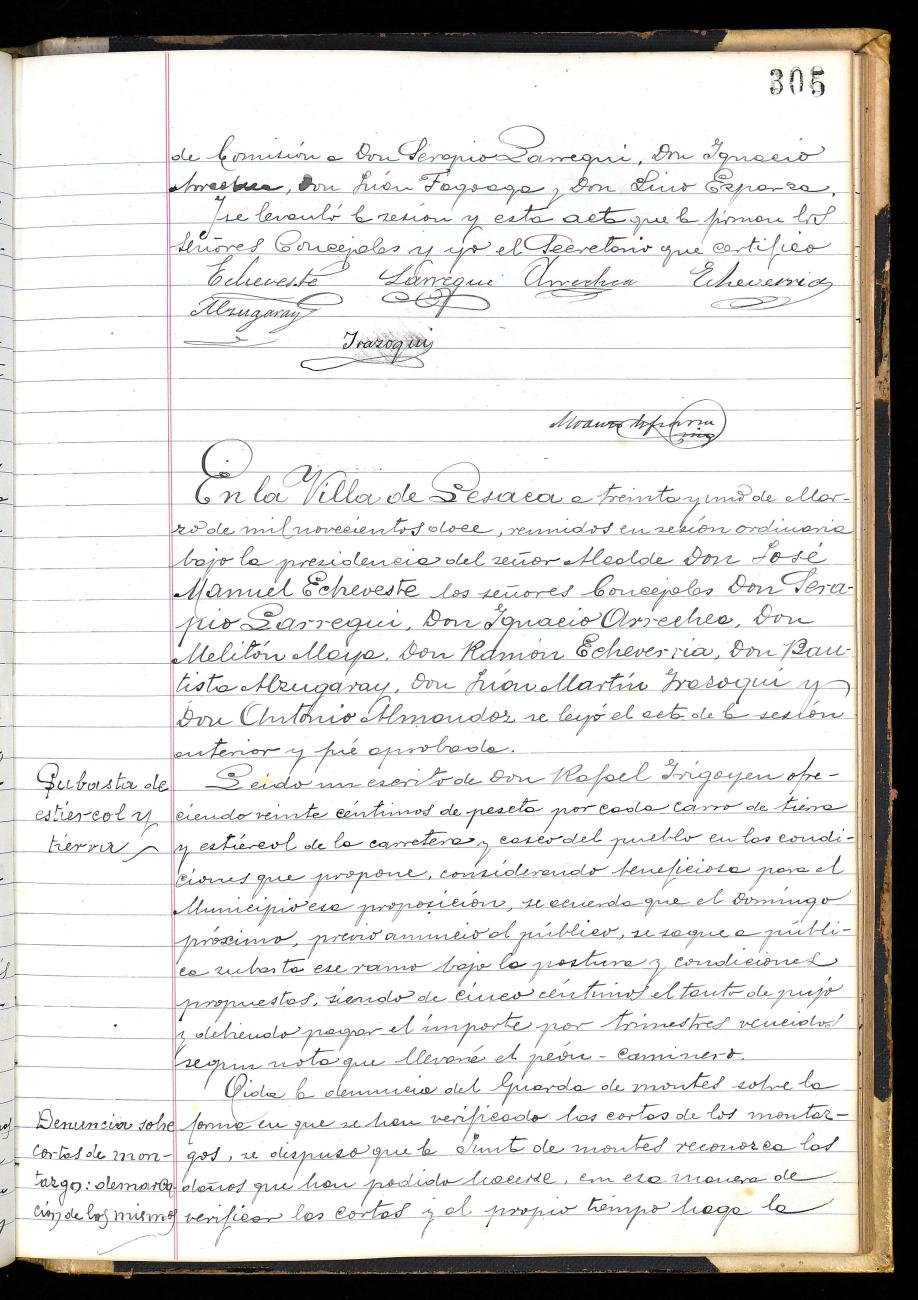 305
de Comisión a Don Serapio Larregui, Don Ignacio
Arrechea, Don Juan Fagoaga y Don Lino Esparza.
Y se levantó la sesión y esta acta que la firman los
señores Concejales y yo el Secretario que certifico
Echeveste Larregui Arrechea Echeverria
Alzugaray
Irazoqui
En la Villa de Lesaca a treinta y uno de Mar-
zo de mil novecientos doce, reunidos en sesión ordinaria
bajo la presidencia del señor Alcalde Don José
Manuel Echeveste los señores Concejales Don Sera-
pio Larregui, Don Ignacio Arrechea, Don
Melitón Maya, Don Ramón Echeverria, Don Bau-
tista Alzugaray, Don Juan Martín Irazoqui y
Don Antonio Almandoz se leyó el acta de la sesión
anterior y fué aprobada.
Subasta de
estiércol y
tierra
Leido un escrito de Don Rafael Irigoyen ofre-
ciendo veinte céntimos de peseta por cada carro de tierra
y estiércol de la carretera y casco del pueblo en las condi-
ciones que propone, considerando beneficiosa para el
Municipio esa proposición, se acuerda que el Domingo
próximo, previo anuncio al público, se saque a públi-
ca subasta ese ramo bajo la postura y condiciones
propuestas, siendo de cinco céntimos el tanto de puja
y debiendo pagar el importe por trimestres vencidos
segun nota que llevará el peón-caminero.
Denuncia sobre
cortas de mon-
tazgo: demarca-
ción de los mismos
Oida la denuncia del Guarda de montes sobre la
forma en que se han verificado las cortas de los montaz-
gos, se dispuso que la Junta de montes reconozca los
daños que han podido hacerse, en esa manera de
verificar las cortas y al propio tiempo haga la